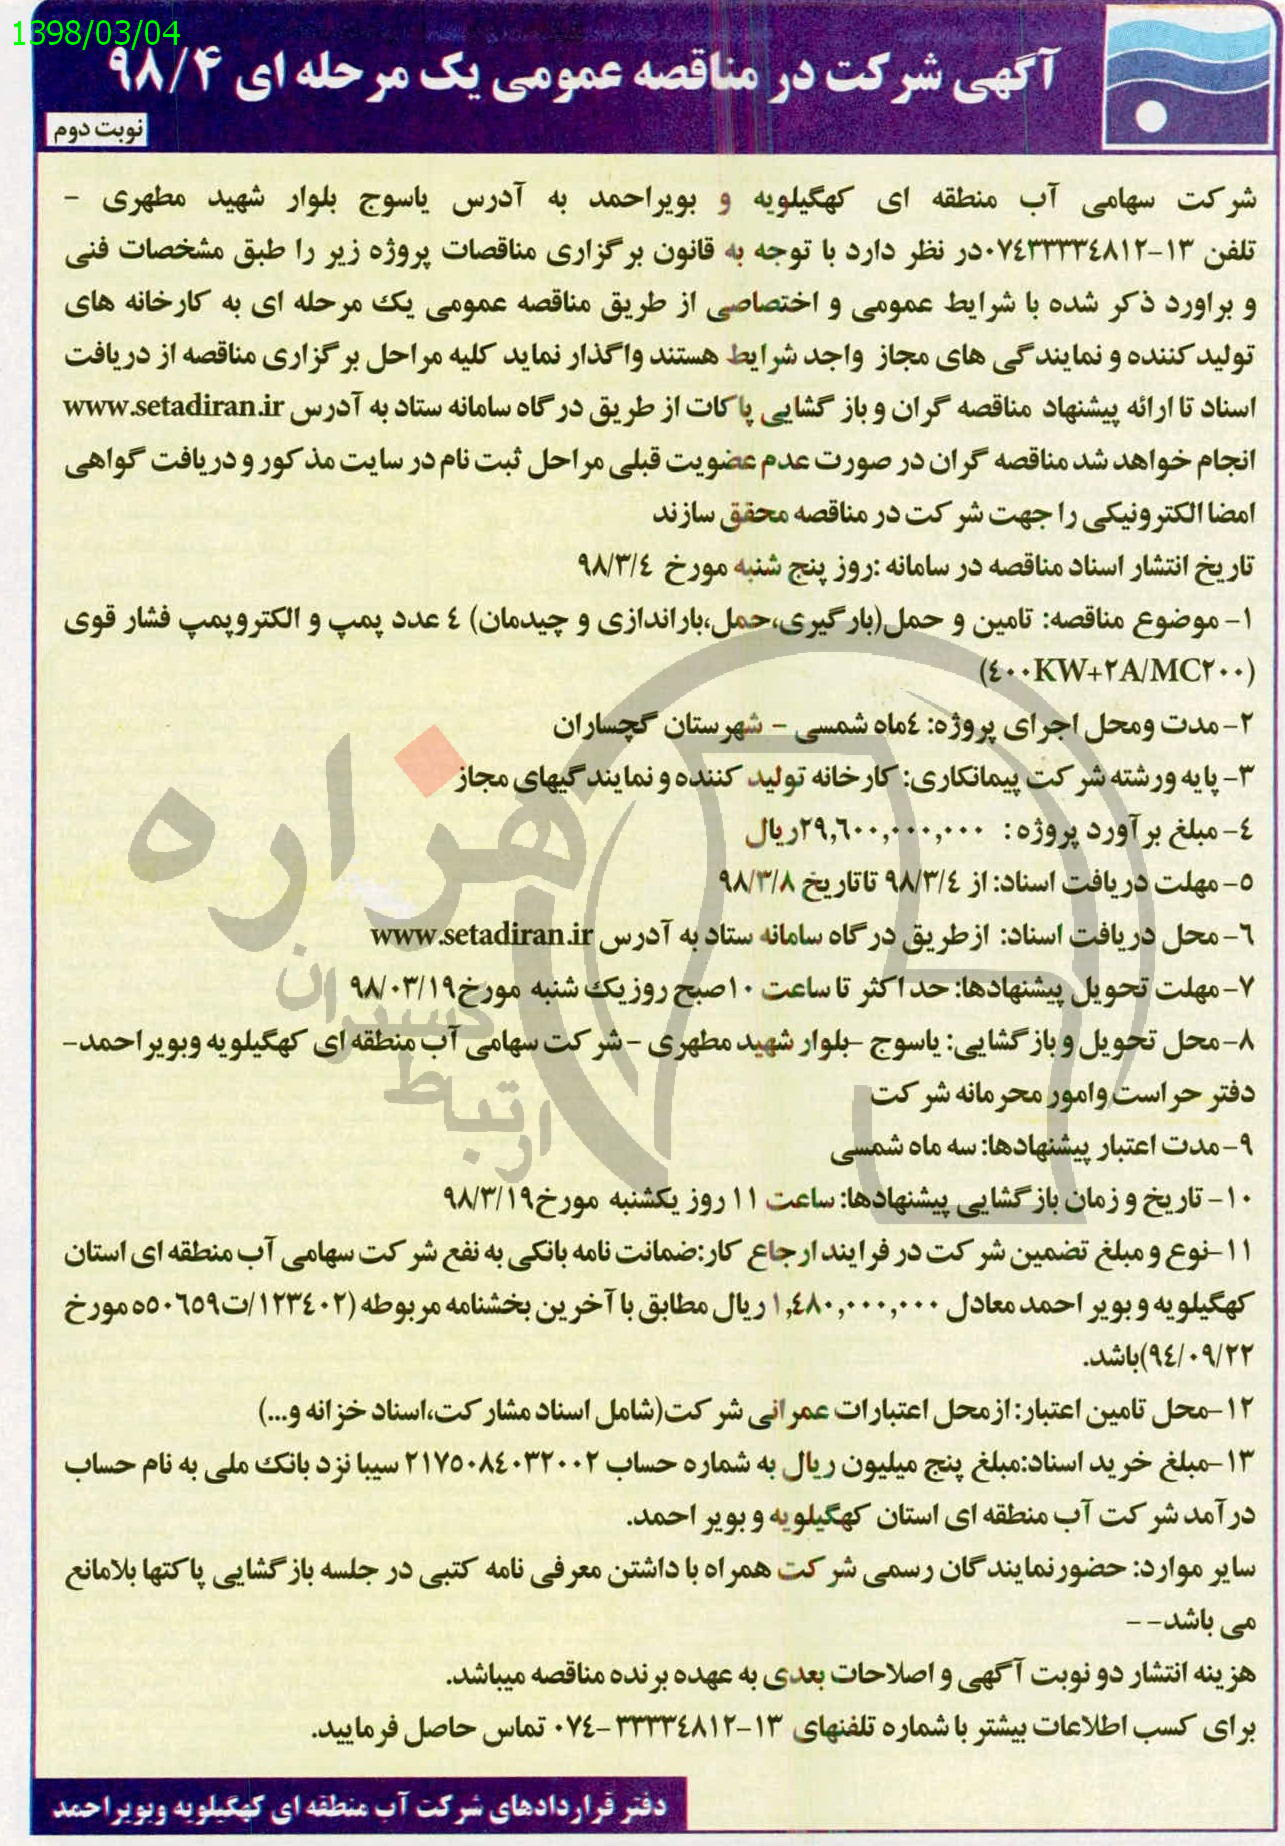 1398/03/04
آگهی شرکت در مناقصه عمومی یک مرحله ای ۹۸/۴
نوبت دوم
شرکت سهامی آب منطقه ای کهگیلویه و بویراحمد به آدرس یاسوج بلوار شهید مطهری -
تلفن ۱۳-۰۷۴۳۳۳۳۴۸۱۲در نظر دارد با توجه به قانون برگزاری مناقصات پروژه زیر را طبق مشخصات فنی
و براورد ذکر شده با شرایط عمومی و اختصاصی از طریق مناقصه عمومی یک مرحله ای به کارخانه های
تولیدکننده و نمایندگی های مجاز واجد شرایط هستند واگذار نماید کلیه مراحل برگزاری مناقصه از دریافت
اسناد تا ارائه پیشنهاد مناقصه گران و باز گشایی پاکات از طریق درگاه سامانه ستاد به آدرس www.setadiran.ir
انجام خواهد شد مناقصه گران در صورت عدم عضویت قبلی مراحل ثبت نام در سایت مذکور و دریافت گواهی
امضا الکترونیکی را جهت شرکت در مناقصه محقق سازند
تاریخ انتشار اسناد مناقصه در سامانه :روز پنج شنبه مورخ ۹۸/۳/۴
۱- موضوع مناقصه: تامین و حمل(بارگیری،حمل،باراندازی و چیدمان) ۴ عدد پمپ و الکتروپمپ فشار قوی
(۴۰۰KW+۲A/MC۲۰۰)
۲- مدت ومحل اجرای پروژه: ۴ماه شمسی - شهرستان گچساران
۳- پایه ورشته شرکت پیمانکاری: کارخانه تولید کننده و نمایندگیهای مجاز
۴- مبلغ برآورد پروژه : ۲۹,۶۰۰,۰۰۰,۰۰۰ریال
۵- مهلت دریافت اسناد: از ۹۸/۳/۴ تاتاریخ ۹۸/۳/۸
۶- محل دریافت اسناد: ازطریق درگاه سامانه ستاد به آدرس www.setadiran.ir
۷- مهلت تحویل پیشنهادها: حداکثر تا ساعت ۱۰صبح روزیک شنبه مورخ۹۸/۰۳/۱۹
۸- محل تحویل و بازگشایی: یاسوج -بلوار شهید مطهری -شرکت سهامی آب منطقه ای کهگیلویه وبویراحمد-
دفتر حراست وامور محرمانه شرکت
۹- مدت اعتبار پیشنهادها: سه ماه شمسی
۱۰- تاریخ و زمان بازگشایی پیشنهادها: ساعت ۱۱ روز یکشنبه مورخ۹۸/۳/۱۹
۱۱-نوع و مبلغ تضمین شرکت در فرایند ارجاع کار:ضمانت نامه بانکی به نفع شرکت سهامی آب منطقه ای استان
کهگیلویه و بویر احمد معادل ۱,۴۸۰,۰۰۰,۰۰۰ ریال مطابق با آخرین بخشنامه مربوطه (۱۲۳۴۰۲/ت۵۰۶۵۹ه مورخ
۹۴/۰۹/۲۲)باشد.
۱۲-محل تامین اعتبار: ازمحل اعتبارات عمرانی شرکت(شامل اسناد مشارکت،اسناد خزانه و...)
۱۳-مبلغ خرید اسناد:مبلغ پنج میلیون ریال به شماره حساب ۲۱۷۵۰۸۴۰۳۲۰۰۲ سیبا نزد بانک ملی به نام حساب
درآمد شرکت آب منطقه ای استان کهگیلویه و بویر احمد.
سایر موارد: حضورنمایندگان رسمی شرکت همراه با داشتن معرفی نامه کتبی در جلسه بازگشایی پاکتها بلامانع
می باشد--
هزینه انتشار دو نوبت آگهی و اصلاحات بعدی به عهده برنده مناقصه میباشد.
برای کسب اطلاعات بیشتر با شماره تلفنهای ۱۳-۳۳۳۳۴۸۱۲-۰۷۴ تماس حاصل فرمایید.
دفتر قراردادهای شرکت آب منطقه ای کهگیلویه وبویراحمد
هزاره
گستران
ارتباط